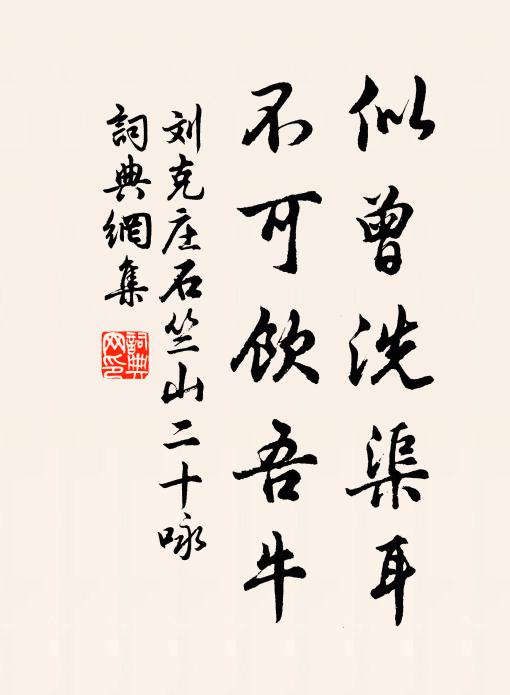 似曾洗渠耳
不可饮吾牛
刘克庄石竺山二十咏
詞典網集
詞典网印